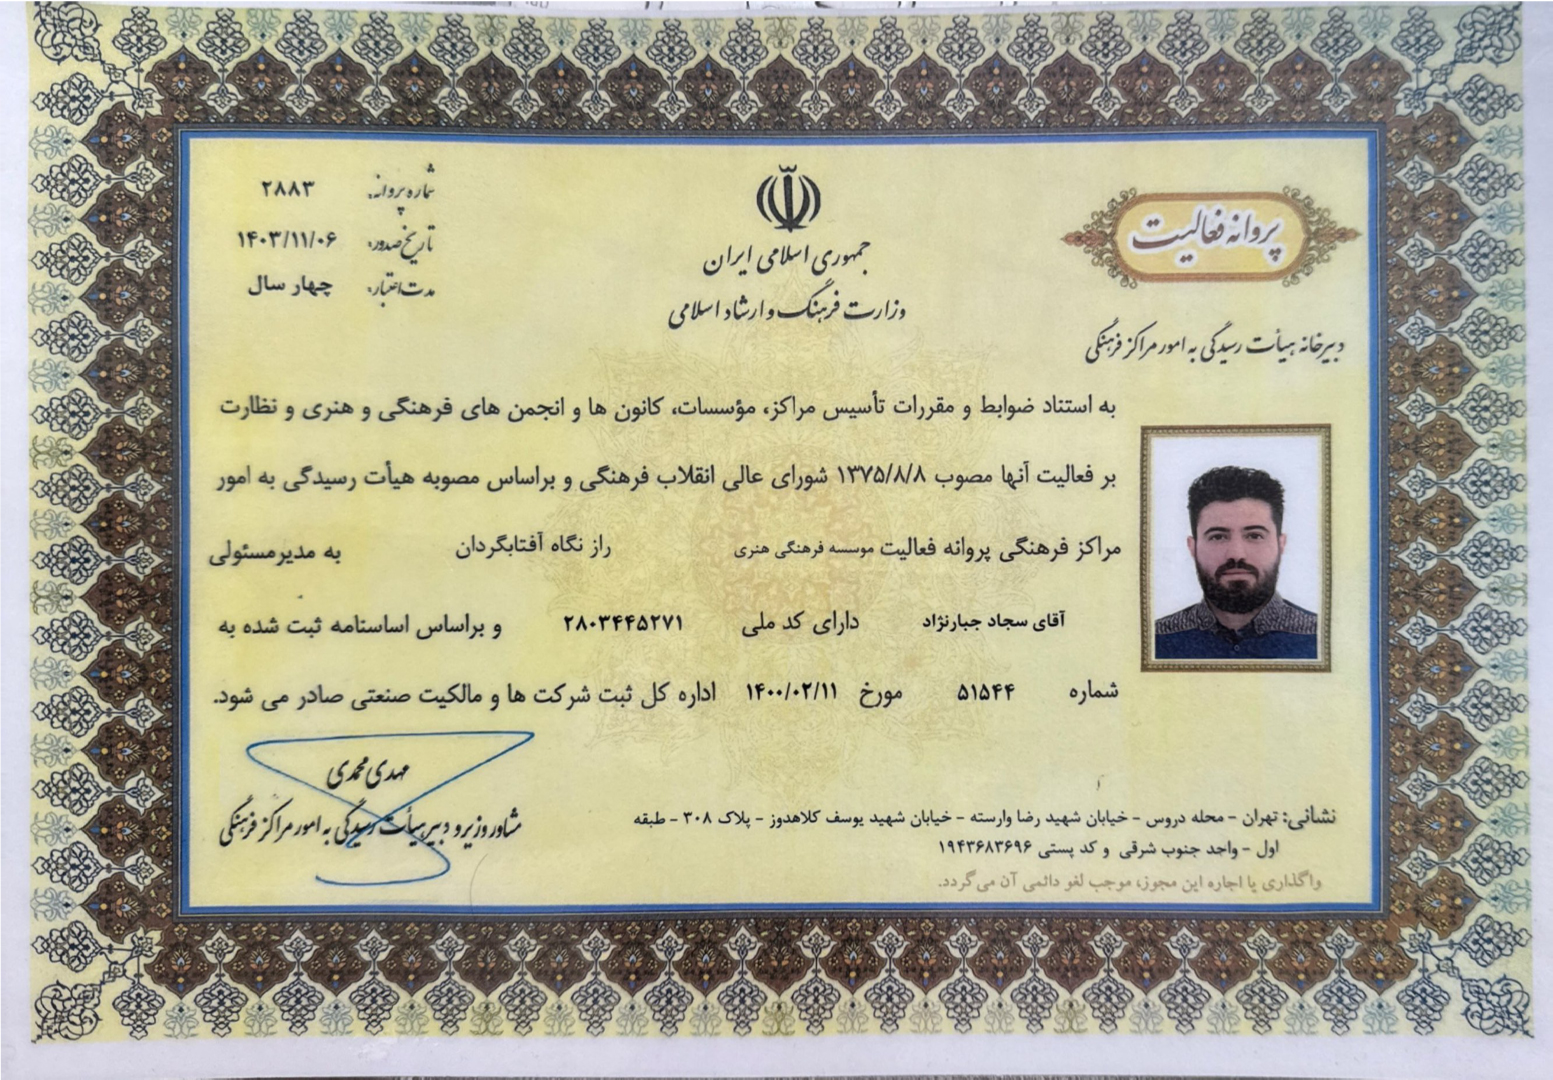 پروانه فعالیت
دبیرخانه هیأت رسیدگی به امور مراکز فرهنگی
جمهوری اسلامی ایران
وزارت فرهنگ و ارشاد اسلامی
شماره پروانه: ۲۸۸۳
تاریخ صدور: ۱۴۰۳/۱۱/۰۶
مدت اعتبار: چهار سال
به استناد ضوابط و مقررات تأسیس مراکز، مؤسسات، کانون ها و انجمن های فرهنگی و هنری و نظارت
بر فعالیت آنها مصوب ۱۳۷۵/۸/۸ شورای عالی انقلاب فرهنگی و براساس مصوبه هیأت رسیدگی به امور
مراکز فرهنگی پروانه فعالیت موسسه فرهنگی هنری راز نگاه آفتابگردان به مدیرمسئولی
آقای سجاد جبارنژاد دارای کد ملی ۲۸۰۳۴۴۵۲۷۱ و براساس اساسنامه ثبت شده به
شماره ۵۱۵۴۴ مورخ ۱۴۰۰/۰۲/۱۱ اداره کل ثبت شرکت ها و مالکیت صنعتی صادر می شود.
مهدی محمدی
مشاور وزیر و دبیر هیأت رسیدگی به امور مراکز فرهنگی
نشانی: تهران - محله دروس - خیابان شهید رضا وارسته - خیابان شهید یوسف کلاهدوز - پلاک ۳۰۸ - طبقه
اول - واحد جنوب شرقی و کد پستی ۱۹۴۳۶۸۳۶۹۶
واگذاری یا اجاره این مجوز، موجب لغو دائمی آن می گردد.